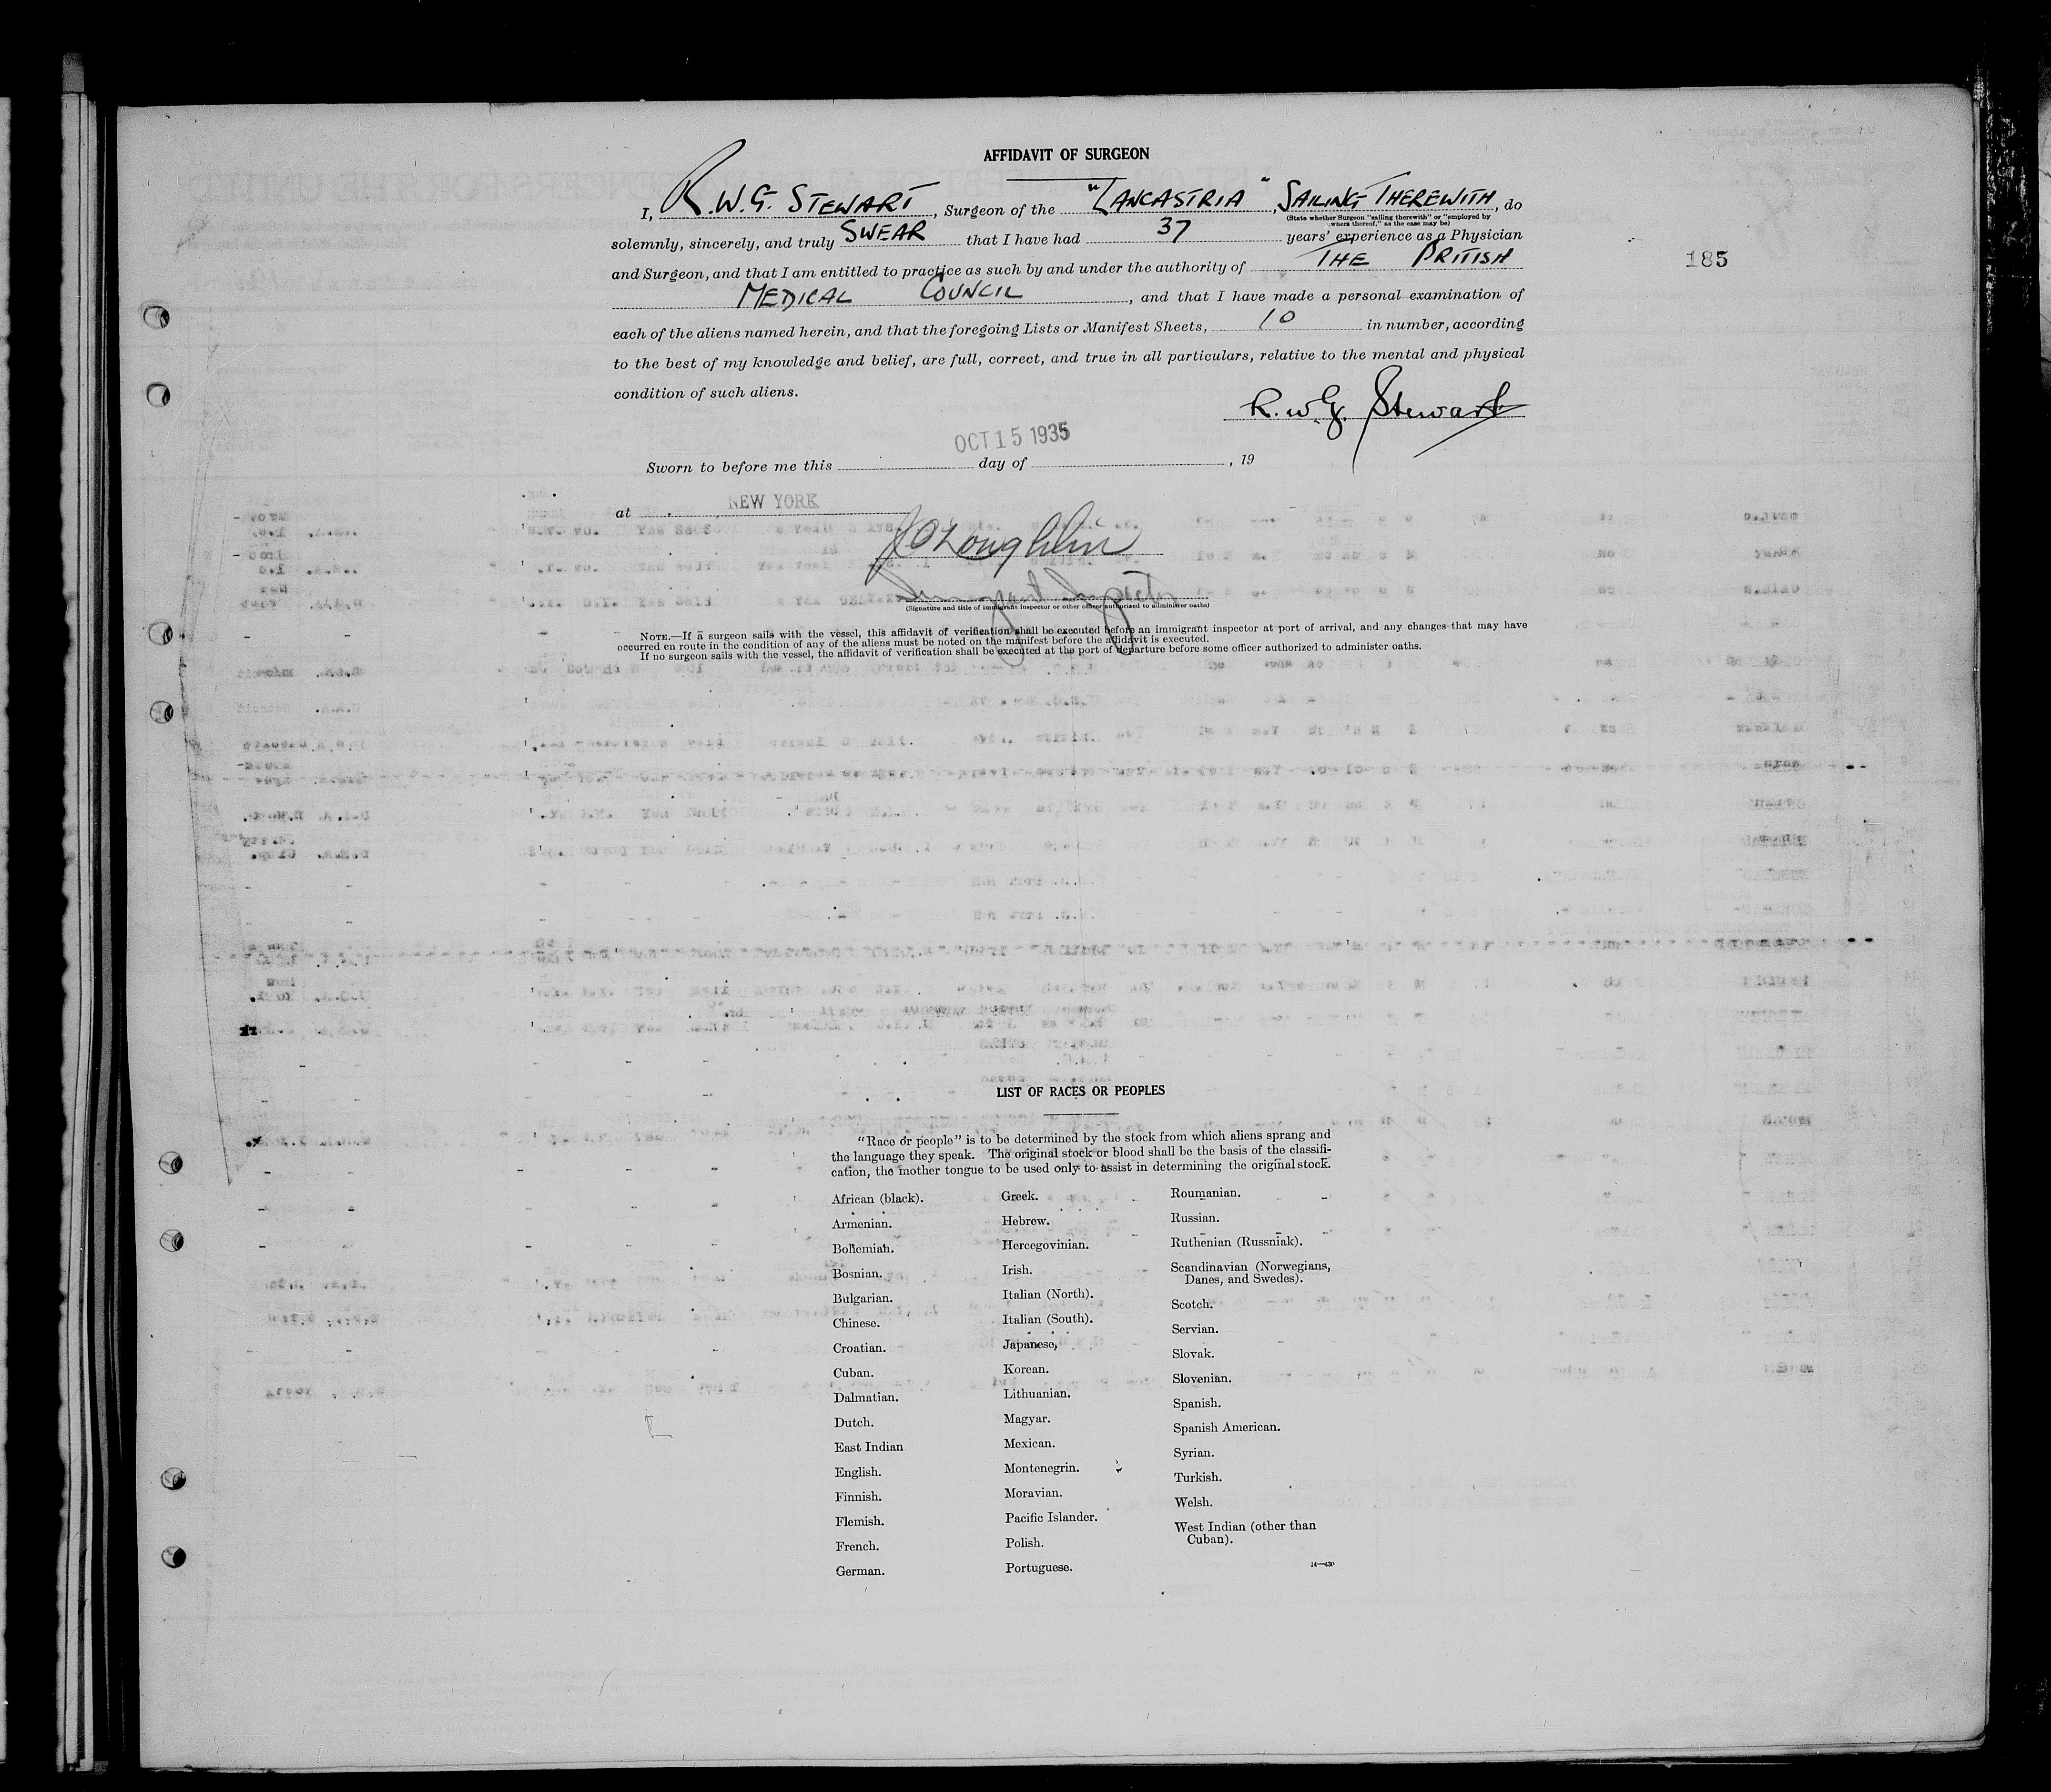 AFFIDAVIT OF SURGEON
I, R.W.G. STEWART, Surgeon of the "LANCASTRIA", SAILING THEREWITH, do
(State whether Surgeon "sailing therewith" or "employed by
owners thereof," as the case may be)
solemnly, sincerely, and truly SWEAR that I have had 37 years' experience as a Physician
and Surgeon, and that I am entitled to practice as such by and under the authority of THE BRITISH
185
MEDICAL COUNCIL, and that I have made a personal examination of
each of the aliens named herein, and that the foregoing Lists or Manifest Sheets, 10 in number, according
to the best of my knowledge and belief, are full, correct, and true in all particulars, relative to the mental and physical
condition of such aliens.
R. W. G. Stewart
OCT 15 1935
Sworn to before me this day of , 19
at NEW YORK
J O'Loughlin
Immigrant Inspector
(Signature and title of immigrant inspector or other officer authorized to administer oaths)
NOTE.—If a surgeon sails with the vessel, this affidavit of verification shall be executed before an immigrant inspector at port of arrival, and any changes that may have
occurred en route in the condition of any of the aliens must be noted on the manifest before the affidavit is executed.
If no surgeon sails with the vessel, the affidavit of verification shall be executed at the port of departure before some officer authorized to administer oaths.
LIST OF RACES OR PEOPLES
"Race or people" is to be determined by the stock from which aliens sprang and
the language they speak. The original stock or blood shall be the basis of the classifi-
cation, the mother tongue to be used only to assist in determining the original stock.
African (black).
Armenian.
Bohemian.
Bosnian.
Bulgarian.
Chinese.
Croatian.
Cuban.
Dalmatian.
Dutch.
East Indian
English.
Finnish.
Flemish.
French.
German.
Greek.
Hebrew.
Hercegovinian.
Irish.
Italian (North).
Italian (South).
Japanese.
Korean.
Lithuanian.
Magyar.
Mexican.
Montenegrin.
Moravian.
Pacific Islander.
Polish.
Portuguese.
Roumanian.
Russian.
Ruthenian (Russniak).
Scandinavian (Norwegians,
Danes, and Swedes).
Scotch.
Servian.
Slovak.
Slovenian.
Spanish.
Spanish American.
Syrian.
Turkish.
Welsh.
West Indian (other than
Cuban).